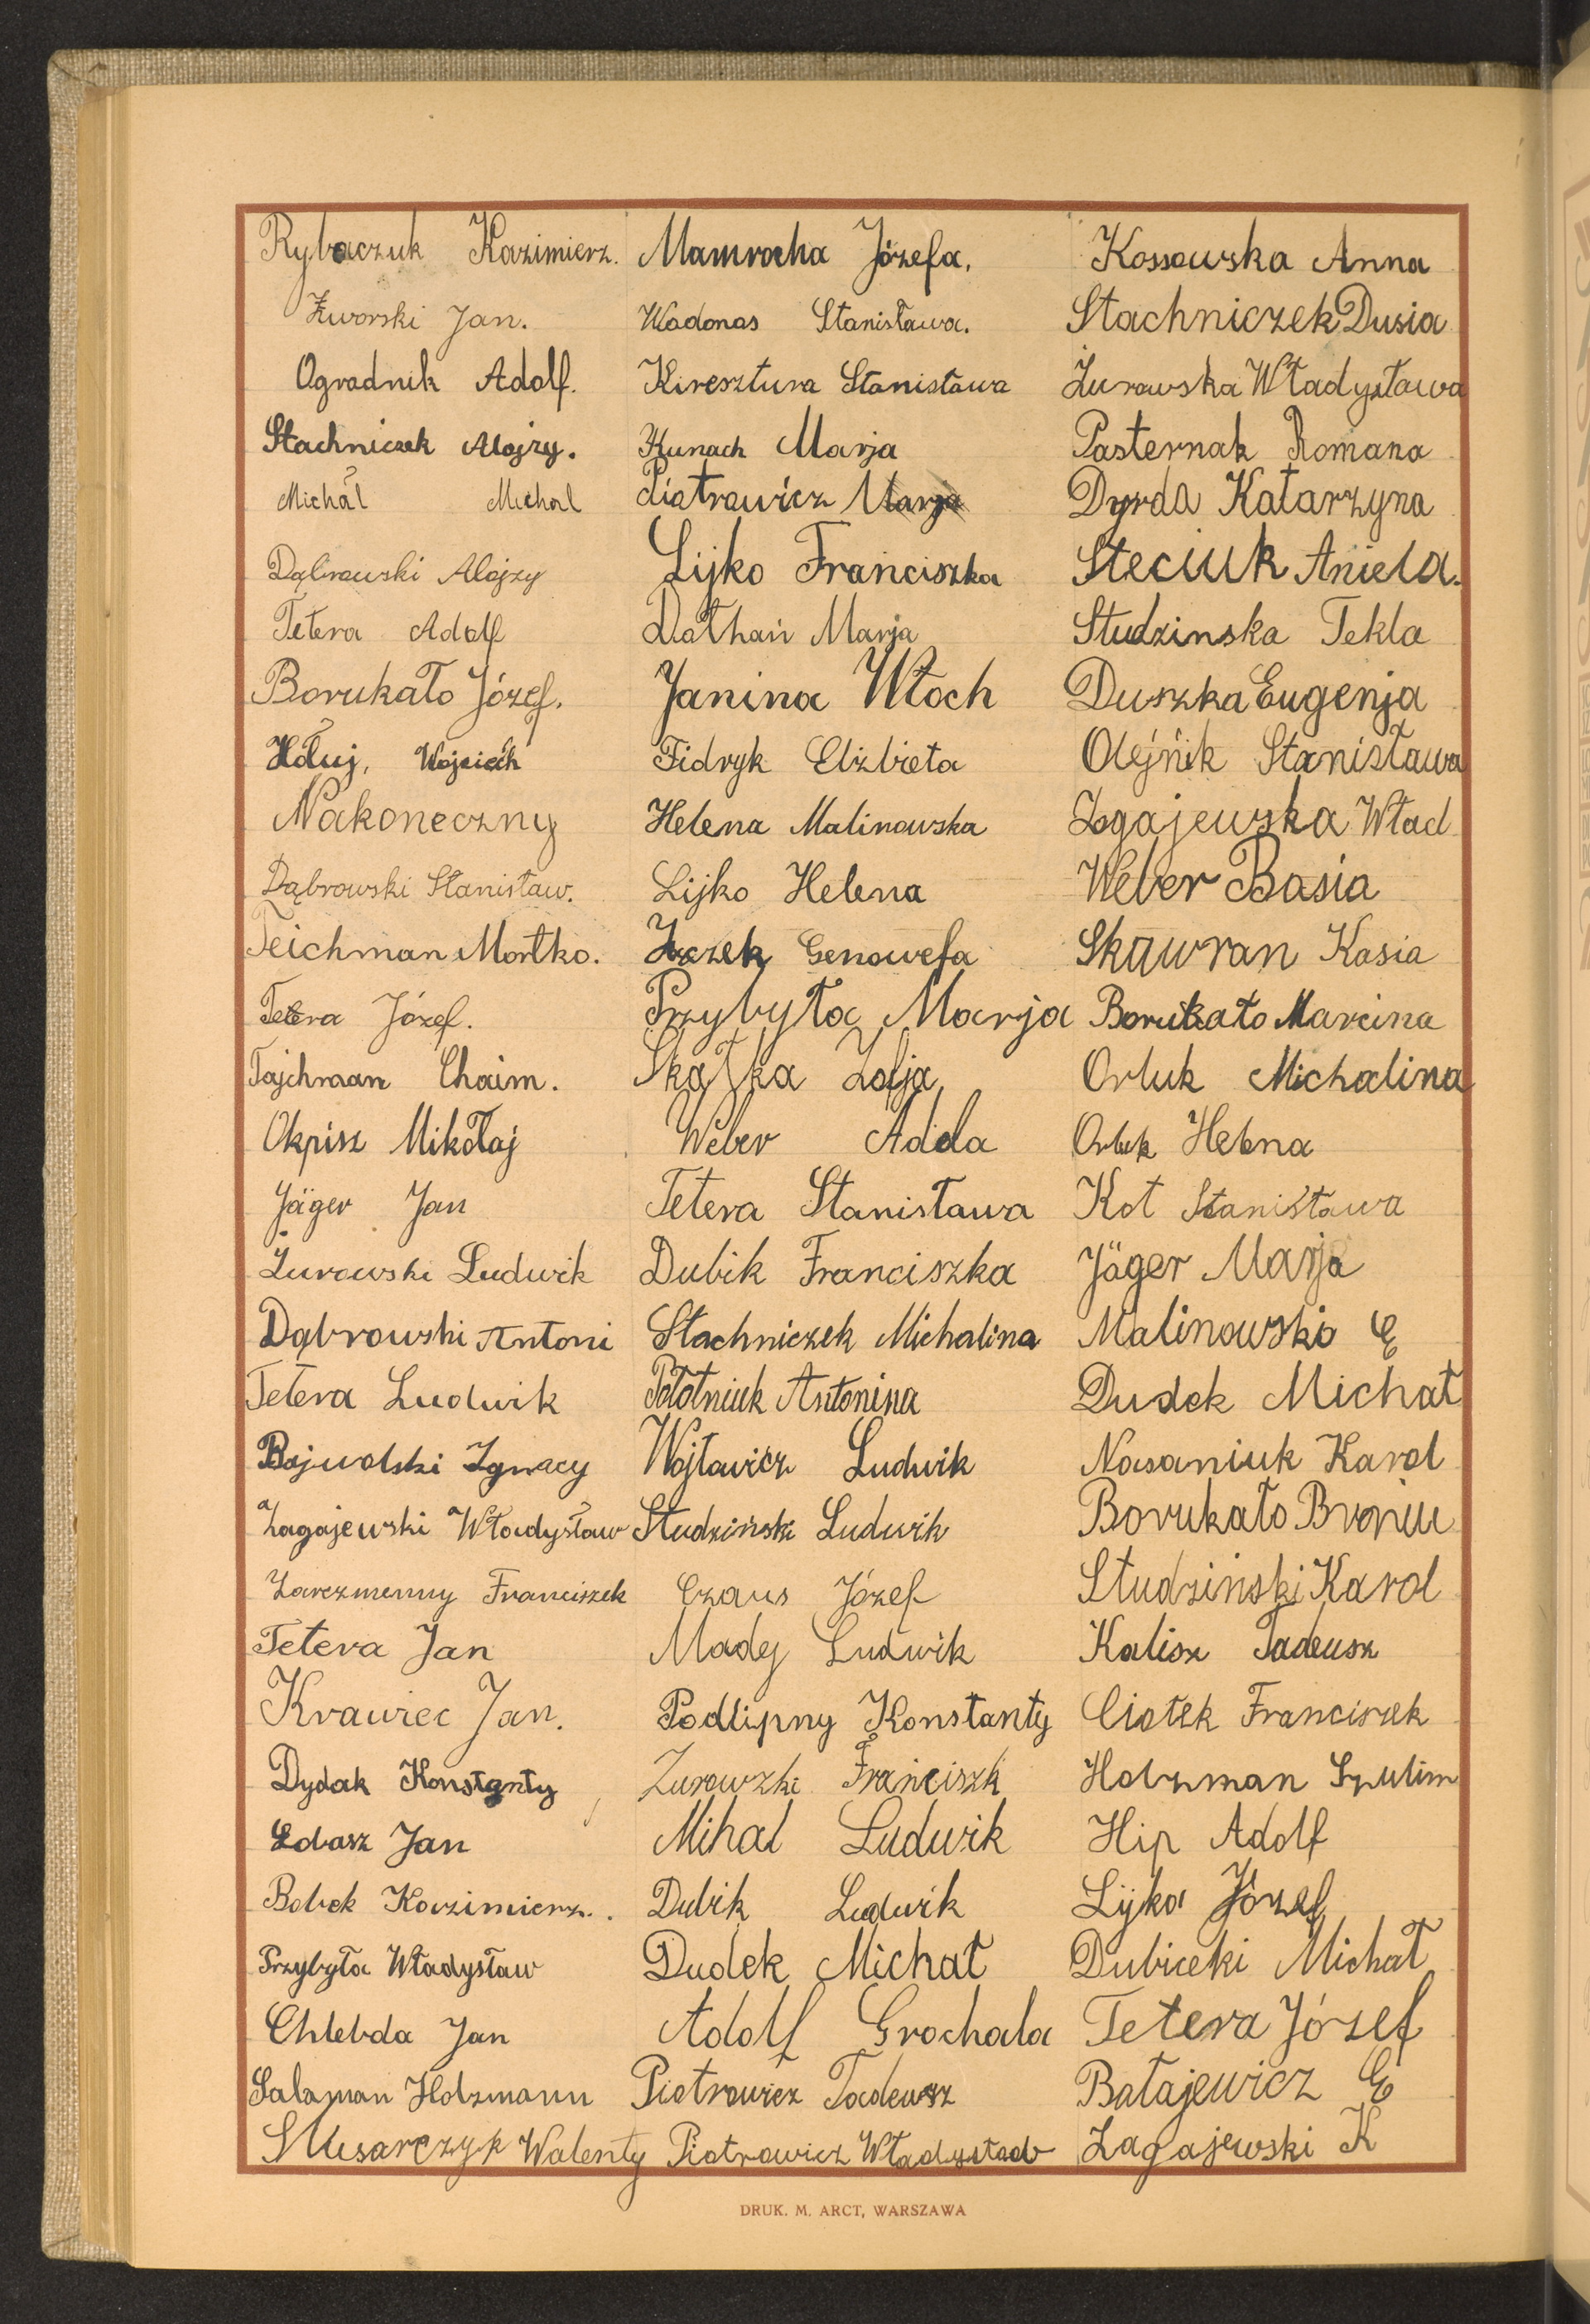 Rybaczuk Kazimierz. Mamrocha Józefa. Kossowska Anna
Żworski Jan. Wadonos Stanisława. Stachniczek Dusia
Ogrodnik Adolf. Kiresztura Stanisława Żurawska Władysława
Stachniczek Alojzy. Kunach Marja Pasternak Romana
Michał Michal Piotrowicz Marja Dyrda Katarzyna
Dąbrowski Alojzy Lijko Franciszka Steciuk Aniela.
Tetera Adolf Dathań Marja Studzinska Tekla
Borukało Józef. Janina Włoch Duszka Eugenja
Hołuj, Wojciech Fidryk Elżbieta Olejńik Stanisława
Nakoneczny Helena Malinowska Zogajewska Wład
Dąbrowski Stanisław. Lijko Helena Weber Basia
Teichman Mortko. Genowefa Skawran Kasia
Tetera Józef. Przybyła Marja Borukało Marcina
Tajchman Chaim. Skałka Zofja Orluk Michalina
Okpisz Mikołaj Weber Adela Orluk Helena
Jäger Jan Tetera Stanisława Kot Stanisława
Żurowski Ludwik Dubik Franciszka Jäger Marja
Dąbrowski Antoni Stachniczek Michalina Malinowski E
Tetera Ludwik Połotniuk Antonina Dudek Michał
Bojwolski Ignacy Wojtowicz Ludwik Nasaniuk Karol
Zagajewski Władysław Studziński Ludwik Borukało
Zarezmenny Franciszek Czaus Józef Studziński Karol
Tetera Jan Madej Ludwik Kalisz Tadeusz
Krawiec Jan. Podlipny Konstanty Ciołek Franciszek
Dydak Konstanty Zurowzki Franciszk Holzman Szulim
Łobasz Jan Mihal Ludwik Hip Adolf
Bobek Kazimierz. Dubik Ludwik Lijko Józef
Przybyła Władysław Dudek Michał Dubicki Michał
Chlebda Jan Adolf Grochala Tetera Józef
Salaman Holzmann Piotrowicz Tadeusz Batajewicz E
Slusarczyk Walenty Piotrowicz Władysław Zagajewski K
DRUK. M. ARCT, WARSZAWA